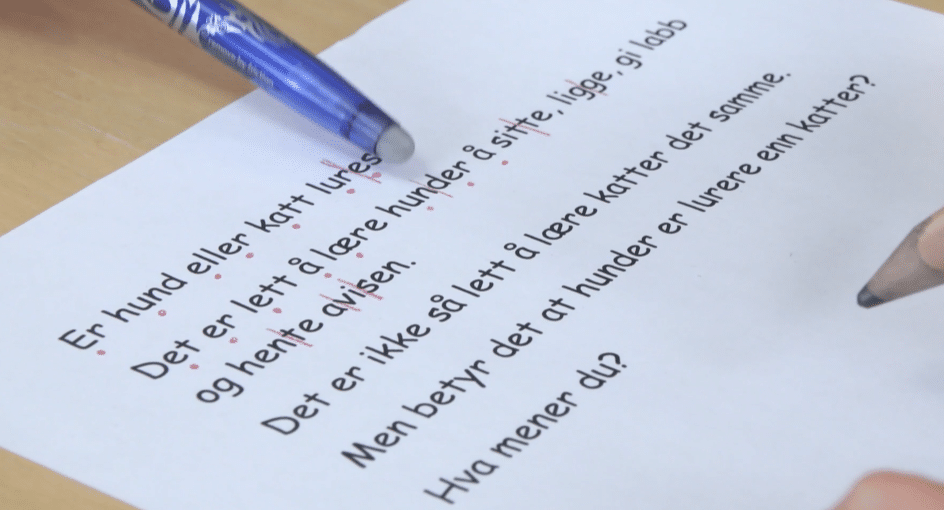 Er hund eller katt lures
Det er lett å lære hunder å sitte, ligge, gi labb
og hente avisen.
Det er ikke så lett å lære katter det samme.
Men betyr det at hunder er lurere enn katter?
Hva mener du?